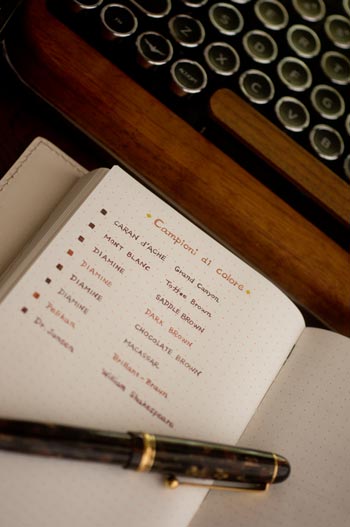 Campioni di colore
CARAN d'ACHE Grand Canyon
MONT BLANC Toffee Brown
DIAMINE SADDLE BROWN
DIAMINE DARK BROWN
DIAMINE CHOCOLATE BROWN
DIAMINE MACASSAR
Pelikan Brilliant-Brown
Dr. Jansen William Shakespeare